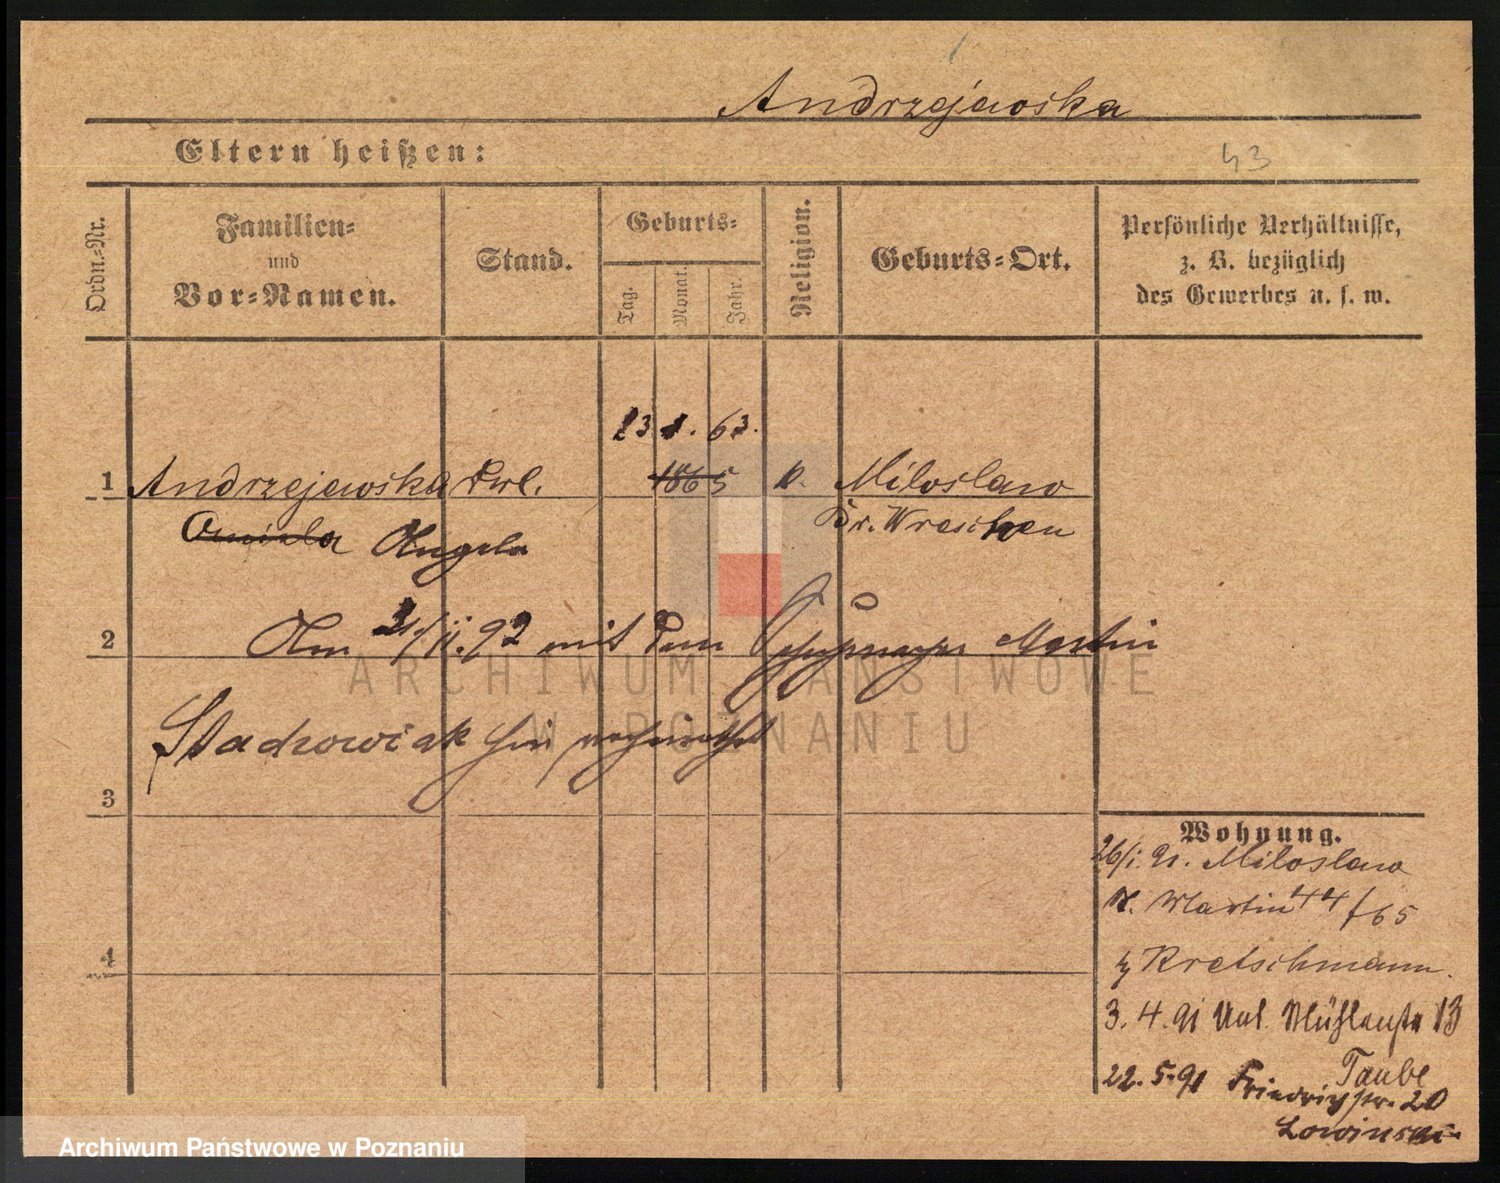 Andrzejewska
Eltern heißen:
43
Ordn.-Nr.
Familien-
und
Vor-Namen.
Stand.
Geburts-
Tag.
Monat.
Jahr.
Religion.
Geburts-Ort.
Persönliche Verhältnisse,
z. B. bezüglich
des Gewerbes u. s. w.
23 1. 63.
1 Andrzejewska 1865 k. Miloslaw
Aniela Angela Kr. Wreschen
2 Am 2/II. 92 mit dem Martin
ARCHIWUM PAŃSTWOWE
W POZNANIU
Stachowiak hier verheirathet
3
4
Wohnung.
26/1. 91. Miloslaw
St. Martin 44/65
b/ Kretschmann.
3. 4. 91 Mühlenstr 13
Taube
22. 5. 91 Friedrichstr. 20
Lowinski
Archiwum Państwowe w Poznaniu